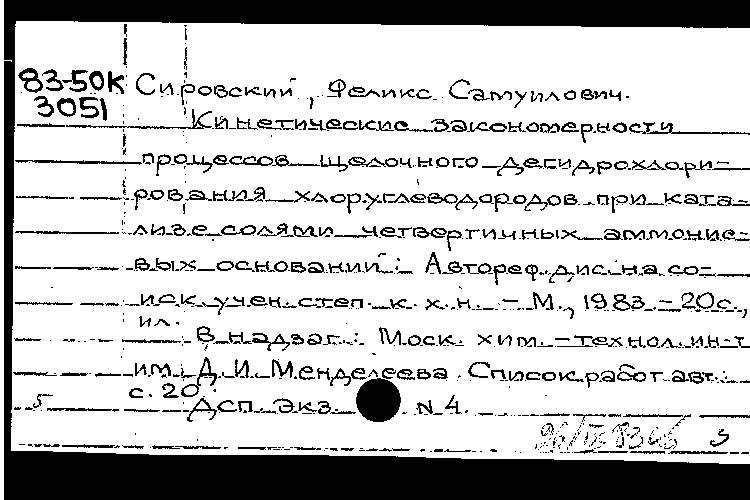 83-50К Сировский, Феликс Самуилович.
3051
Кинетические закономерности
процессов щелочного дегидрохлори-
рования хлоруглеводородов при ката-
лизе солями четвертичных аммоние-
вых оснований: Автореф. дис. на со-
иск. учен. степ. к. х. н. - М., 1983. - 20с.,
ил.
В надзаг.: Моск. хим.-технол. ин-т
им. Д. И. Менделеева. Список работ авт.:
с. 20.
5 ДСП. Экз. N 4.